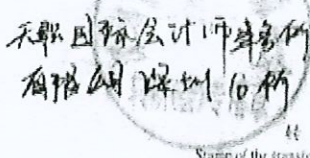 天职国际会计师事务所
有限公司深圳分所
Stamp of the transfe